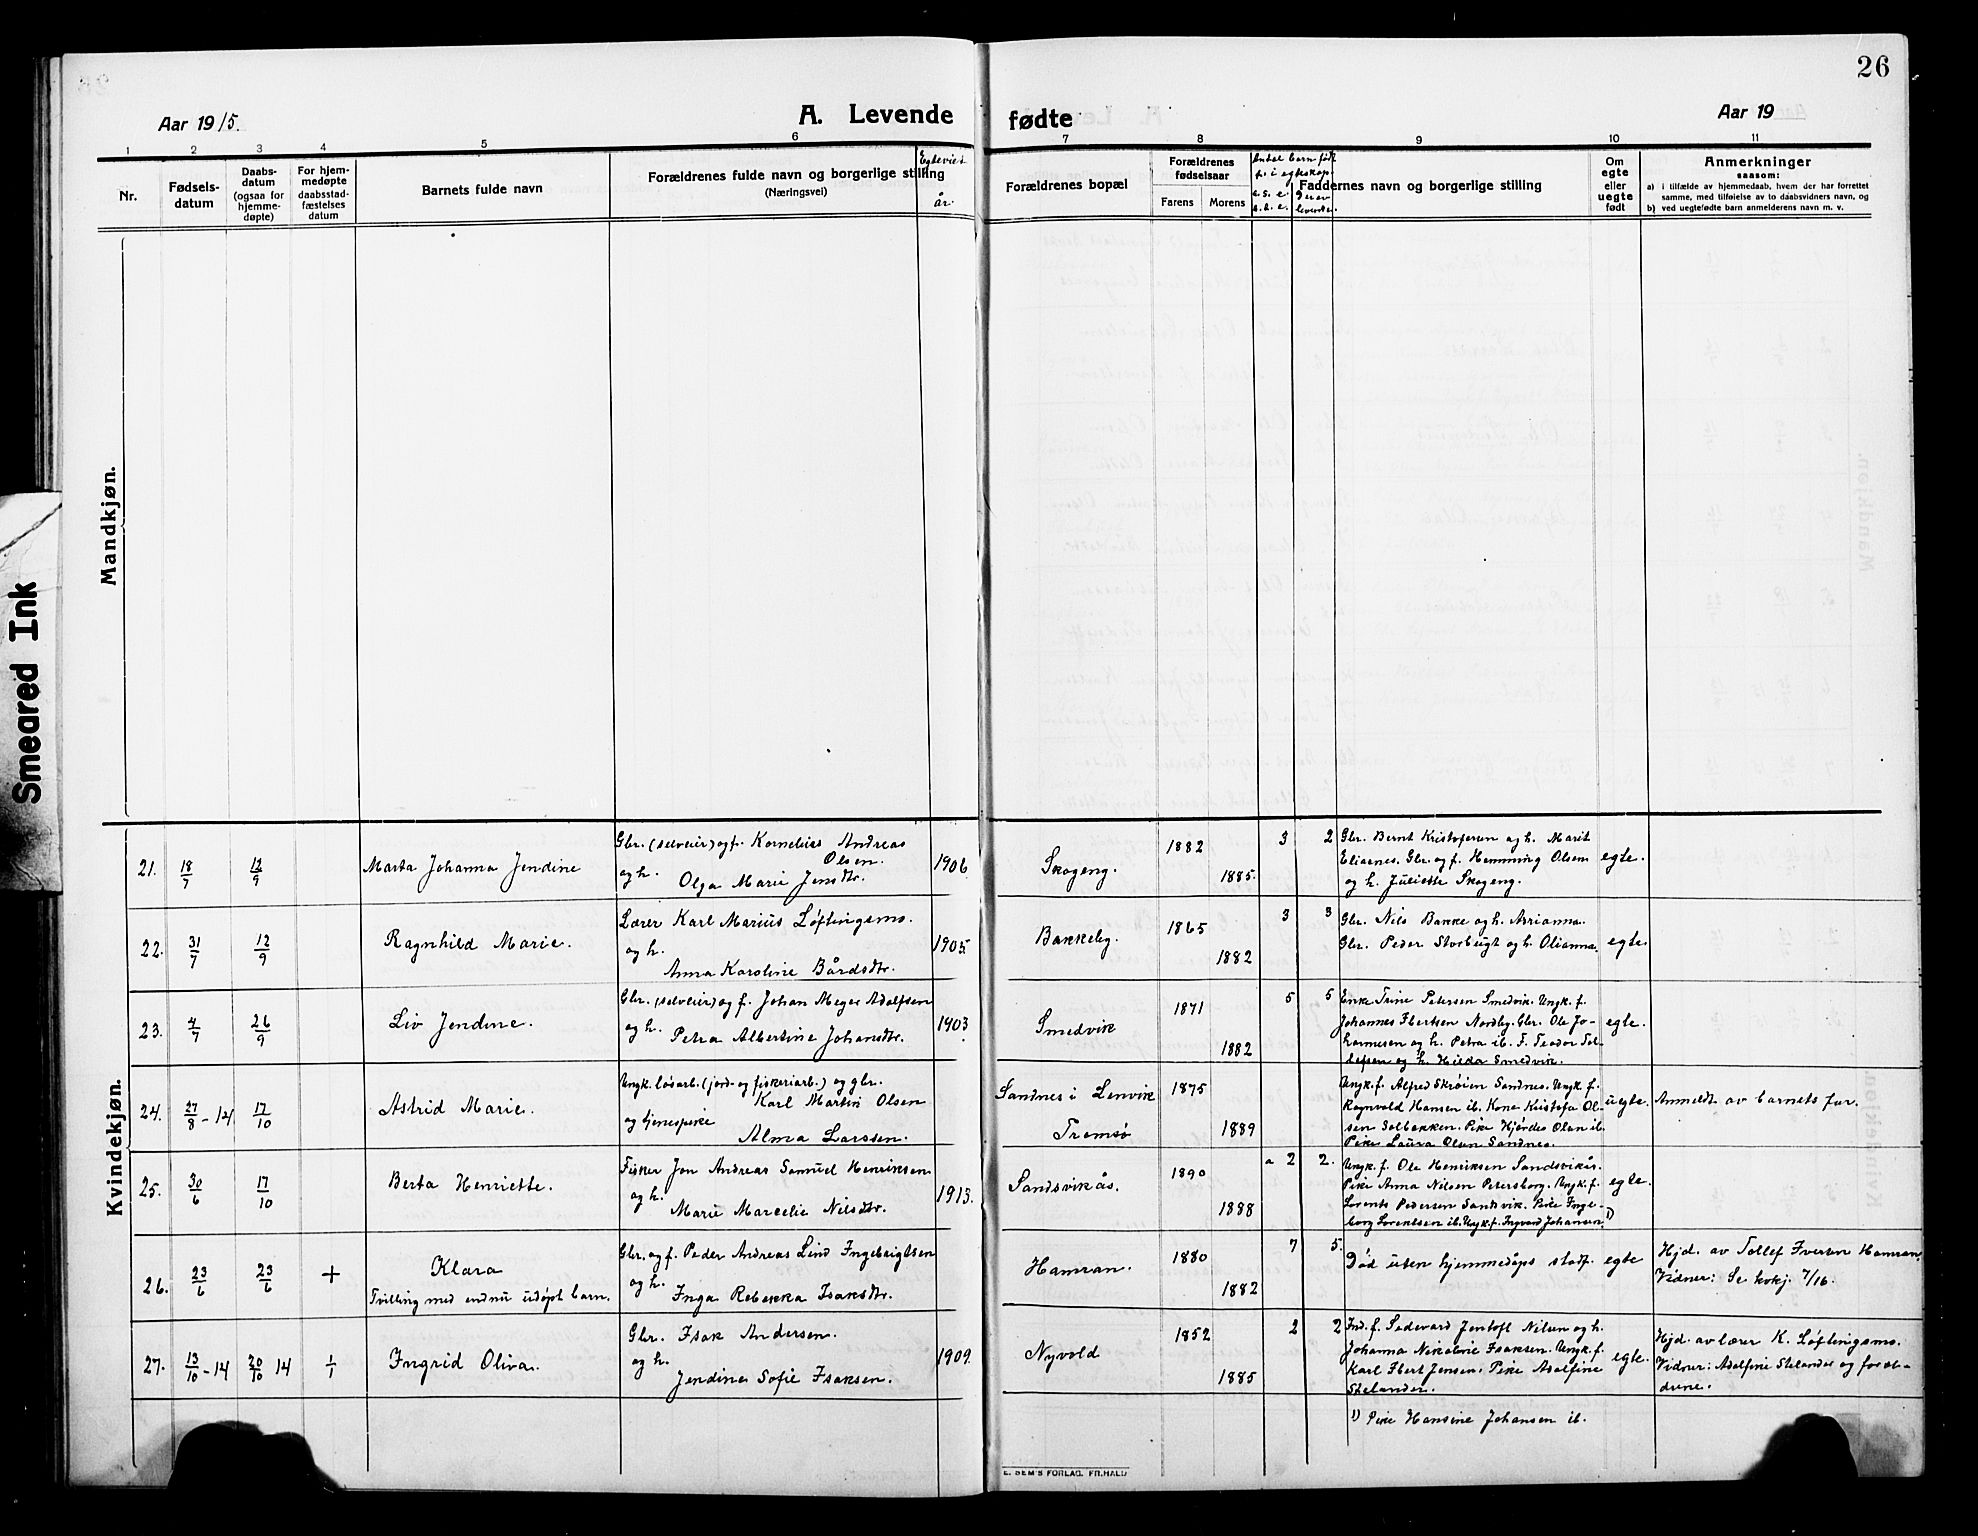 Smeared Ink
26
Aar 1915.
A. Levende
fødte
Aar 19
1 2 3 4 5 6 7 8 9 10 11
Nr.
Fødsels-
datum
Daabs-
datum
(ogsaa for
hjemme-
døpte)
For hjem-
medøpte
daabsstad-
fæstelses
datum
Barnets fulde navn
Forældrenes fulde navn og borgerlige stilling
(Næringsvei)
Egteviet
år.
Forældrenes bopæl
Forældrenes
fødselsaar
Farens Morens
Antal barn født
Faddernes navn og borgerlige stilling
Om
egte
eller
uegte
født
Anmerkninger
saasom:
a) i tilfælde av hjemmedaab, hvem der har forrettet
samme, med tilføielse av to daabsvidners navn, og
b) ved uegtefødte barn anmelderens navn m. v.
Mandkjøn.
Kvindekjøn.
21. 18/7 12/9 Marta Johanna Jendine
Gbr. (selveier) og f. Kornelius Andreas
Olsen.
og h. Olga Marie Jensdtr.
1906
Skogeng.
1882
1885.
3 2
Gbr. Bernt Kristofersen og h. Marit
Eliasnes. Gbr. og f. Hemming Olsen
og h. Juliette Skogeng.
egte.
22. 31/7 12/9 Ragnhild Marie.
Lærer Karl Marius Løftingsmo.
og h.
Anna Karoline Bårdsdtr.
1905.
Bakkeby.
1865
1882
3 3
Gbr. Nils Bakke og h. Arianna.
Gbr. Peder Storbugt og h. Olianna.
egte
23. 4/7 26/9 Liv Jendine.
Gbr. (selveier) og f. Johan Meyer Adolfsen
og h. Petra Albertine Johansdtr.
1903
Smedvik
1871
1882
5 5
Enke Trine Petersen Smedvik. Ungk. f.
Johannes Ebertsen Nordby. Gbr. Ole Jo-
hannesen og h. Petra ib. F. Teodor Tol-
lefsen og h. Hilda Smedvik.
egte.
24. 27/8 - 14 17/10 Astrid Marie.
Ungk. løsarb. (jord- og fiskeriarb.) og gbr.
Karl Martin Olsen
og tjenespike
Alma Larssen.
Sandnes i Lenvik
Tromsø
1875
1889
Ungk. f. Alfred Skrøien Sandnes. Ungk. f.
Ragnvald Hansen ib. Kone Kristofa Ol-
sen Solbakken. Pike Hjørdes Olsen ib.
Pike Laura Olsen Sandnes.
uegte.
Anmeldt av barnets far.
25. 30/6 17/10 Berta Henriette.
Fisker Jon Andreas Samuel Henriksen
og h.
Marie Marcelie Nilsdtr.
1913.
Sandsvikås.
1890
1888
a 2 2.
Ungk. f. Ole Henriksen Sandsvikås.
Pike Anna Nilsen Petersborg. Ungk. f.
Lorents Pedersen Sandsvik. Pike Inge-
borg Lorentsen ib. Ungk. f. Ingvard Johansen 1)
egte.
26. 23/6 23/6 + Klara
Tvilling med endnu udøpt barn.
Gbr. og f. Peder Andreas Lind Ingebrigtsen
og h.
Inga Rebekka Isaksdtr.
Hamran.
1880
1882
7 5.
Død uten hjemmedåps stadf.
egte
Hjd. av Tollef Iversen Hamran.
Vidner: Se kvkj. 7/16.
27. 13/10 - 14 20/10 14 1/1 Ingrid Oliva.
Gbr. Isak Andersen.
og h.
Jendine Sofie Isaksen.
1909.
Nyvold
1852
1885
2 2
Ind. f. Sedevard Jentoft Nilsen og h.
Johanna Nikoline Isaksen. Ungk. f.
Karl Ebert Jensen. Pike Adolfine
Stelander.
egte.
Hjd. av lærer K. Løftingsmo.
Vidner: Adolfine Stelander og foræl-
drene.
1) Pike Hansine Johansen ib.
E. SEM'S FORLAG. FR.HALD